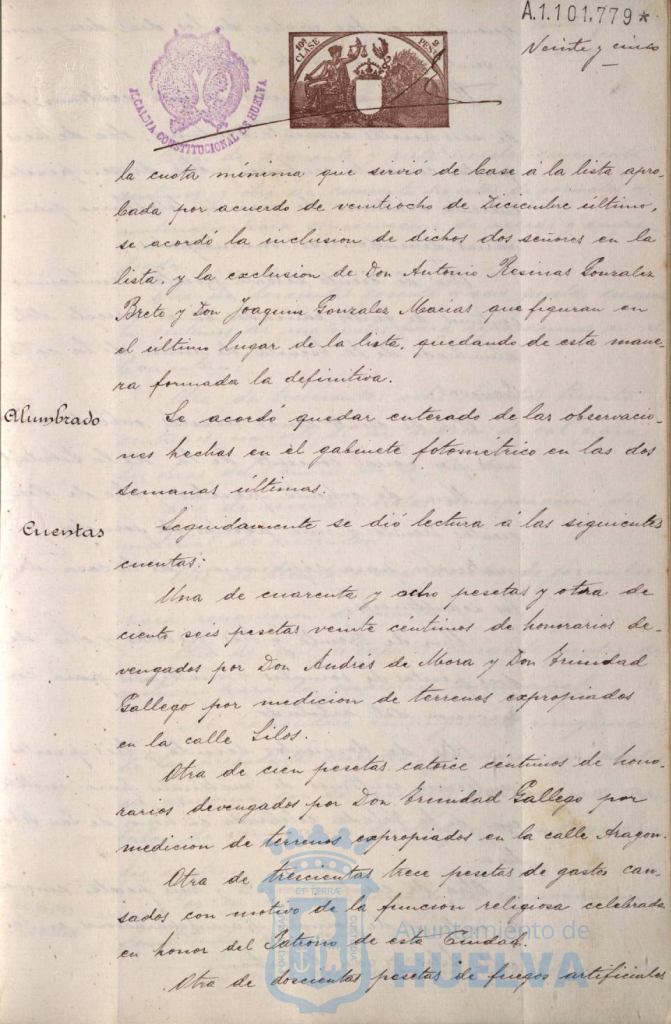 A.1.101,779*
Veinte y cinco
10ª CLASE
2 PESᵗᵃˢ
ALCALDIA CONSTITUCIONAL DE HUELVA
la cuota mínima que sirvió de base á la lista apro-
bada por acuerdo de veintiocho de Diciembre último,
se acordó la inclusion de dichos dos señores en la
lista, y la exclusion de Don Antonio Resinas Gonzalez
Brete y Don Joaquin Gonzalez Macias que figuran en
el último lugar de la lista, quedando de esta mane-
ra formada la definitiva.
Alumbrado
Se acordó quedar enterado de las observacio-
nes hechas en el gabinete fotométrico en las dos
semanas últimas.
Cuentas
Seguidamente se dió lectura á las siguientes
cuentas:
Una de cuarenta y ocho pesetas y otra de
ciento seis pesetas veinte céntimos de honorarios de-
vengados por Don Andrés de Mora y Don Trinidad
Gallego por medicion de terrenos expropiados
en la calle Silos.
Otra de cien pesetas catorce céntimos de hono-
rarios devengados por Don Trinidad Gallego por
medicion de terrenos expropiados en la calle Aragon.
Otra de trescientas trece pesetas de gastos cau-
sados con motivo de la funcion religiosa celebrada
en honor del Patrono de esta Ciudad.
Otra de doscientas pesetas de fuegos artificiales
Ayuntamiento de
HUELVA